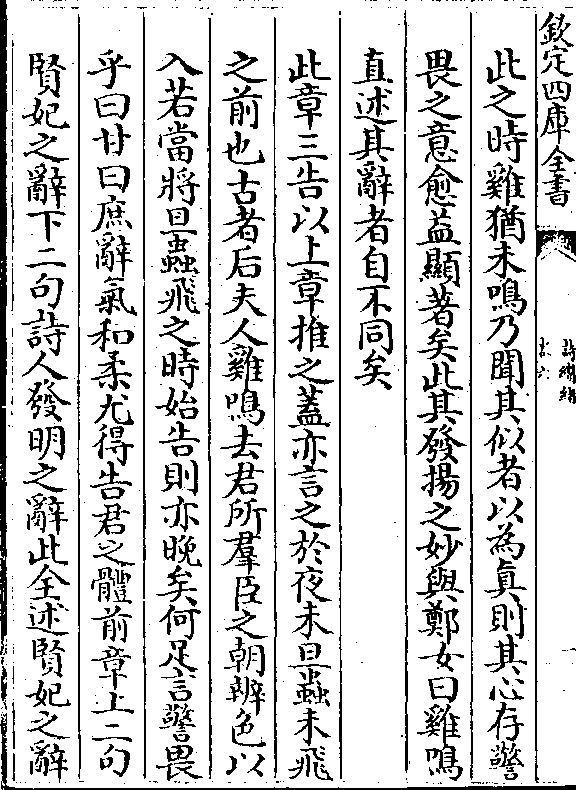 欽定四庫全書
詩纘緒
卷六
此之時雞猶未鳴乃聞其似者以為真則其心存警
畏之意愈益顯著矣此其發揚之妙與鄭女曰雞鳴
直述其辭者自不同矣
此章三告以上章推之蓋亦言之於夜未旦蟲未飛
之前也古者后夫人雞鳴去君所羣臣之朝辨色以
入若當將旦蟲飛之時始告則亦晚矣何足言警畏
乎曰甘曰庶辭氣和柔尤得告君之體前章上二句
賢妃之辭下二句詩人發明之辭此全述賢妃之辭